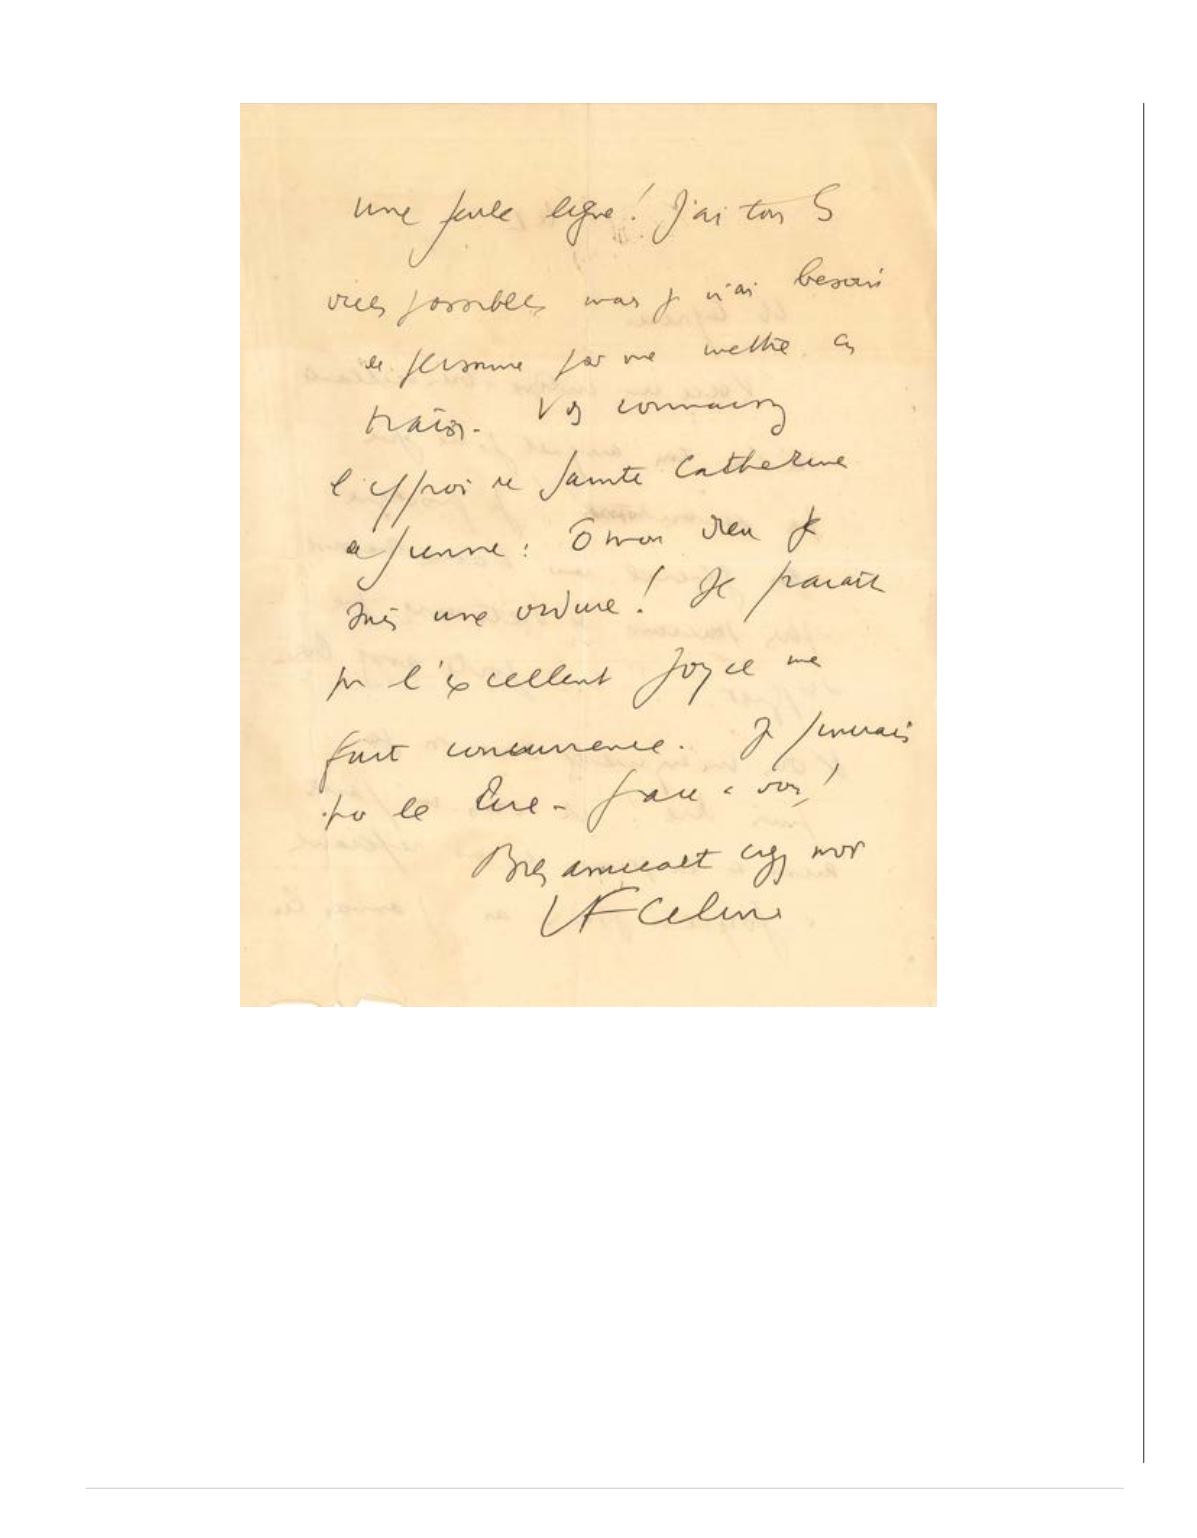 une seule ligne! J'ai tous
vices possibles mais je n'ai besoin
de personne pour me mettre en
train. Vous connaissez
l'effroi de Sainte Catherine
de Sienne: Ô mon Dieu je
suis une ordure! Je paraît
l'excellent Joyce me
fait concurrence. Je pourrais
pas le lire - grâce à vous!
Bien amicalt chez moi
LF Celine